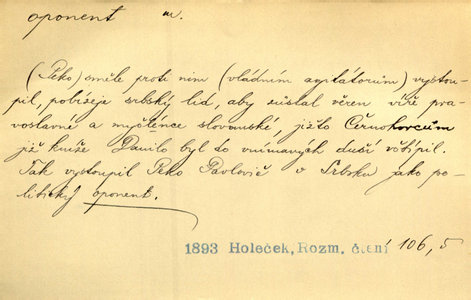 oponent m.
(Peko) směle proti nim (vládním agitátorům) vystou-
pil, pobízeje srbský lid, aby zůstal věren víře pra-
voslavné a myšlénce slovanské, jižto Černohorcům
již kníže Danilo byl do vnímavých duší vštípil.
Tak vystoupil Peko Pavlovič v Srbsku jako po-
litický oponent.
1893 Holeček, Rozm. čtení 106,5